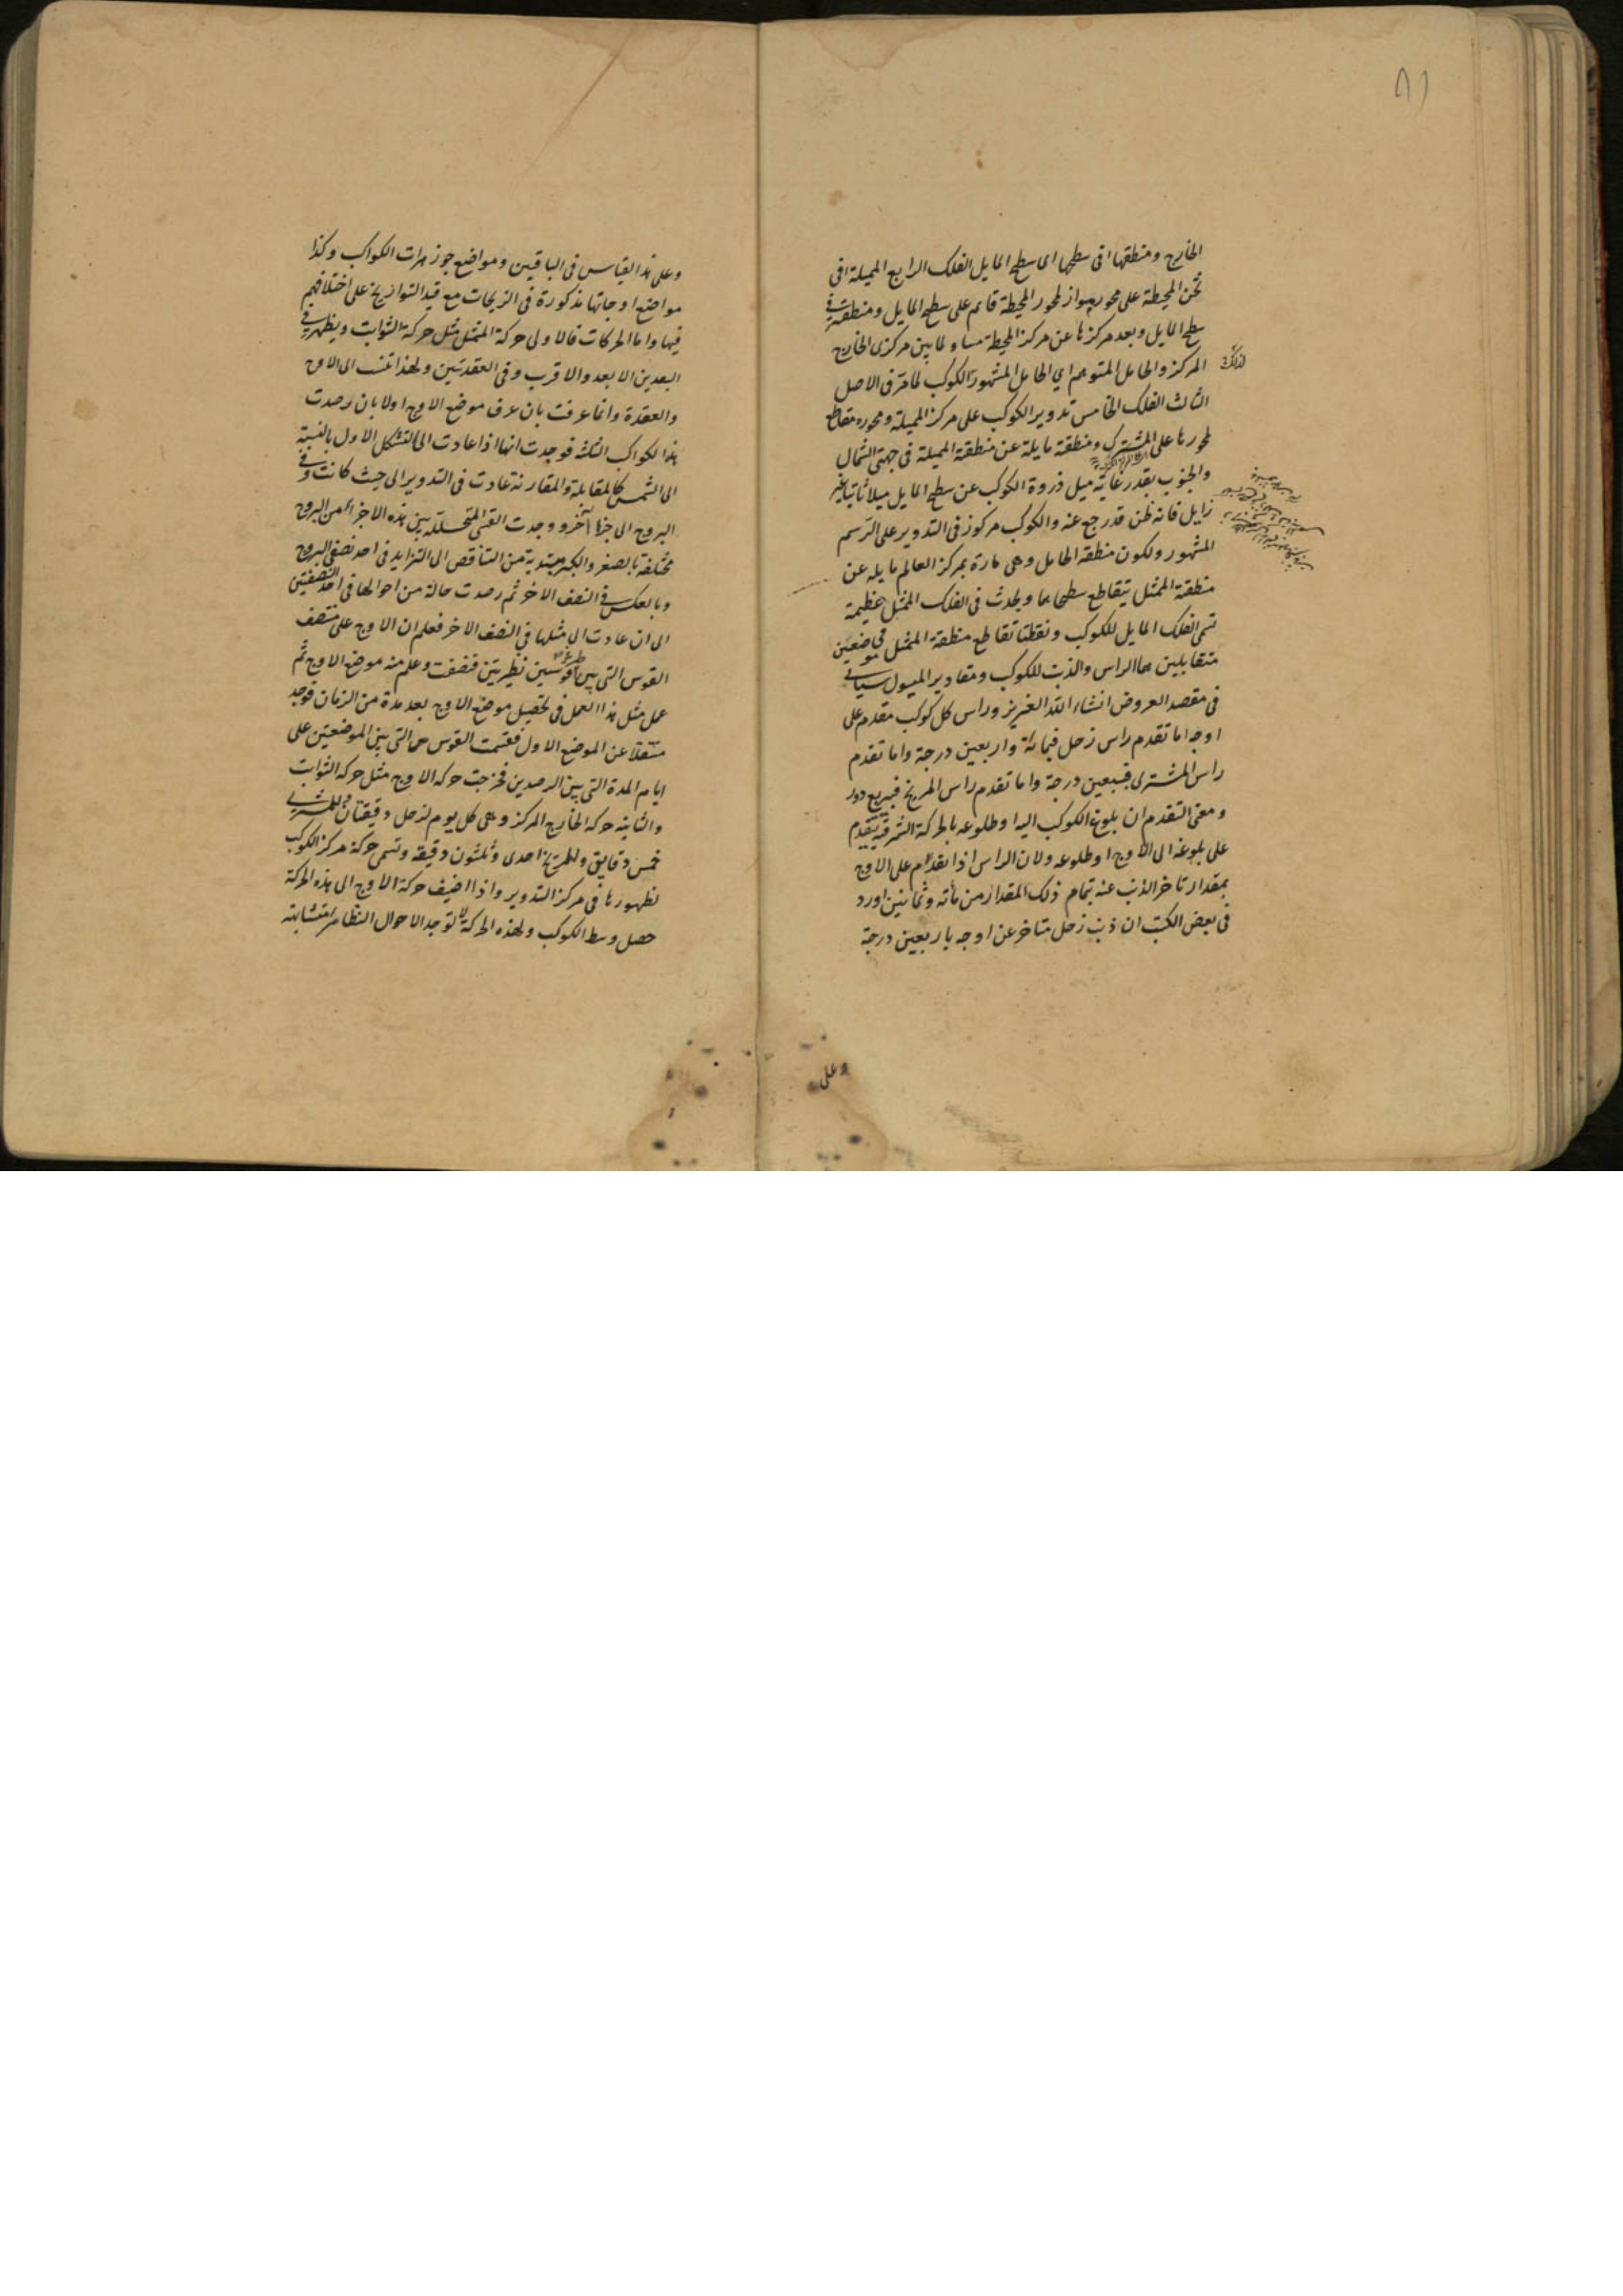 الخارج ومنطقها فى سطحها اى سطح المايل الفلك الرابع المميلة فى
ثخن المحيطة على محور مواز لمحور المحيطة قايم على سطح المايل ومنطقته فى
سطح المايل وبعد مركزها عن مركز المحيطة مساو لما بين مركزى الخارج
المركز والحامل المتوهم اى الحامل المشهور للكوكب لما مر فى الاصل
الثالث الفلك الخامس تدوير الكوكب على مركز المميلة ومحوره مقاطع
لمحورها على المشترك ومنطقته مايلة عن منطقة المميلة فى جهتى الشمال
والجنوب بقدر غاية ميل ذروة الكوكب عن سطح المايل ميلا ثابتا غير
زايل فانه ظن قد رجع عنه والكوكب مركوز فى التدوير على الرسم
المشهور ولكون منطقة الحامل وهى مارة بمركز العالم مايله عن
منطقة الممثل يتقاطع سطحاهما ويحدث فى الفلك الممثل عظيمة
تسمى الفلك المايل للكوكب ونقطتا تقاطع منطقة الممثل فى موضعين
متقابلين هما الراس والذنب للكوكب ومقادير الميول سياتى
فى مقصد العروض انشاء الله العزيز وراس كل كوكب مقدم على
اوجه اما تقدم راس زحل فبمائة واربعين درجة واما تقدم
راس المشترى فبسبعين درجة واما تقدم راس المريخ فبربع دور
ومعنى التقدم ان بلوغ الكوكب اليه او طلوعه بالحركة الشرقية يتقدم
على بلوغه الى الاوج او طلوعه ولان الراس اذا تقدم على الاوج
بمقدار تاخر الذنب عنه بتمام ذلك المقدار من مائه وثمانين اورد
فى بعض الكتب ان ذنب زحل متاخر عن اوجه باربعين درجة
وعلى
وعلى هذا القياس فى الباقيين ومواضع جوزهرات الكواكب وكذا
مواضع اوجاتها مذكورة فى الزيجات مع قيد التواريخ على اختلافهم
فيها واما الحركات فالاولى حركة الممثل مثل حركة الثوابت ويظهر فى
البعدين الابعد والاقرب وفى العقدتين ولهذا تنسب الى الاوج
والعقدة وانما عرفت بان عرف موضع الاوج اولا بان رصدت
هذا الكواكب الثلثة فوجدت انها اذا عادت الى التشكل الاول بالنسبة
الى الشمس كالمقابلة والمقارنة عادت فى التدوير الى حيث كانت وفى
البروج الى جزء اخر ووجدت القسى المتخللة بين هذه الاجزاء من البروج
مختلفة بالصغر والكبر مبتدية من التناقص الى التزايد فى احد نصفى البروج
وبالعكس فى النصف الاخر ثم رصدت حالة من احوالها فى احد النصفين
الى ان عادت الى مثلها فى النصف الاخر فعلم ان الاوج على منتصف
القوس التى بين قوسين نظيرتين فنصفت وعلم منه موضع الاوج ثم
عمل مثل هذا العمل فى تحصيل موضع الاوج بعد مدة من الزمان فوجد
منتقلا عن الموضع الاول فقسمت القوس التى بين الموضعين على
ايام المدة التى بين الرصدين فخرجت حركه الاوج مثل حركه الثوابت
والثانية حركه الخارج المركز وهى كل يوم لزحل دقيقتان وللمشترى
خمس دقايق وللمريخ احدى وثلثون دقيقه وتسمى حركة مركز الكوكب
لظهورها فى مركز التدوير واذا اضيف حركة الاوج الى هذه الحركة
حصل وسط الكوكب ولهذه الحركة لا توجد الاحوال النظاير متشابهة